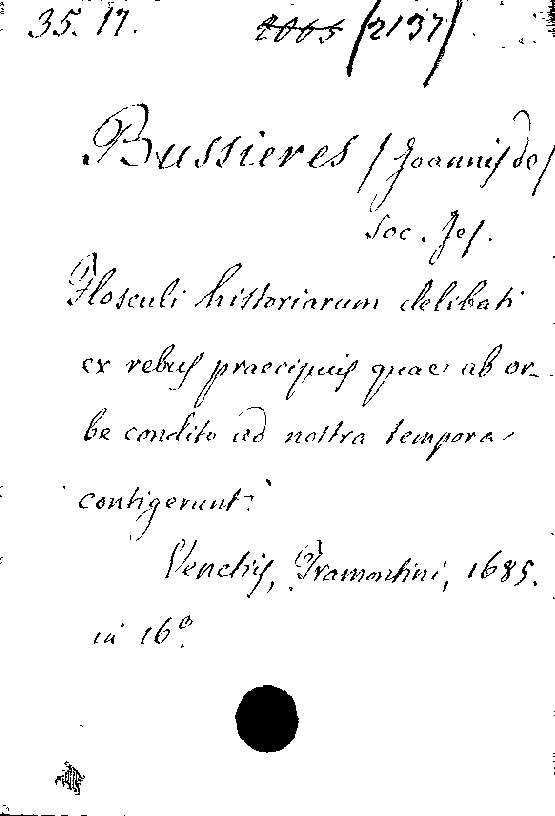 35. 17. 2065 (2137)
Bussieres (Joannis de)
Soc. Jes.
Flosculi historiarum delibati
ex rebus praecipuis quae ab or-
be condito ad nostra tempora
contigerunt.
Venetiis, Tramontini, 1685.
in 16°.